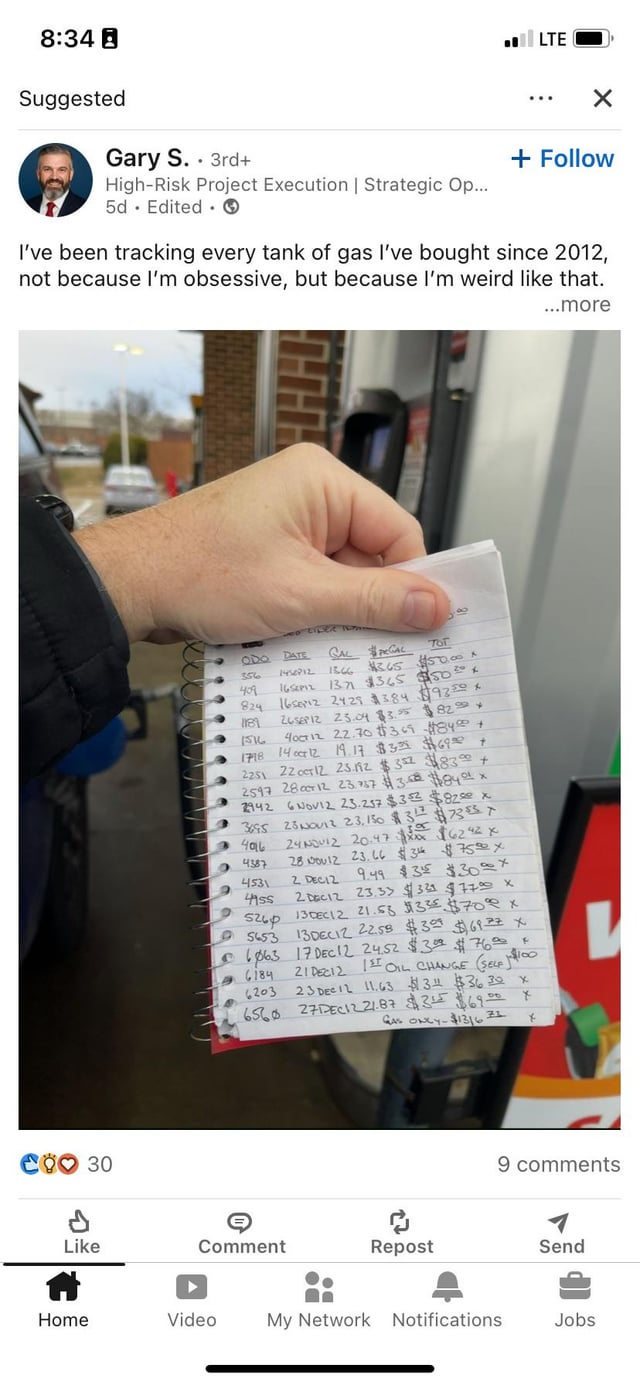 8:34
LTE
Suggested
Gary S. • 3rd+
+ Follow
High-Risk Project Execution | Strategic Op...
5d • Edited •
I've been tracking every tank of gas I've bought since 2012,
not because I'm obsessive, but because I'm weird like that.
...more
ODO DATE GAL $PerGAL TOT
356 14SEP12 13.66 $3.65 $50.00 x
409 16SEP12 13.71 $3.65 $50 20 x
824 16SEP12 24.29 $3.84 $93 50 x
1189 26SEP12 23.04 $3. $82 00 x
1516 4OCT12 22.70 $3.69 $84 00 +
1718 14OCT12 19.17 $3 $69 00 +
2251 22OCT12 23.12 $3 52 $83 00 +
2597 28OCT12 23.757 $3 58 $84 01 x
2942 6NOV12 23.257 $3 52 $82 00 x
3655 23NOV12 23.150 $3 17 $73 55 +
4016 24NOV12 20.47 $62 42 x
4387 28NOV12 23.66 $ $75 00 x
4531 2DEC12 9.49 $3 $30 00 x
4955 2DEC12 23.33 $3 $77 00 x
5260 13DEC12 21.53 $3 25 $70 00 x
5653 13DEC12 22.58 $3 09 $69 77 x
6063 17DEC12 24.52 $3 09 $76 00 x
6184 21DEC12 1ST OIL CHANGE (SELF) $100
6203 23DEC12 11.63 $3 11 $36 30 x
6560 27DEC12 21.87 $3 15 $69 00 x
GAS ONLY - $1316 71 x
30
9 comments
Like Comment Repost Send
Home Video My Network Notifications Jobs